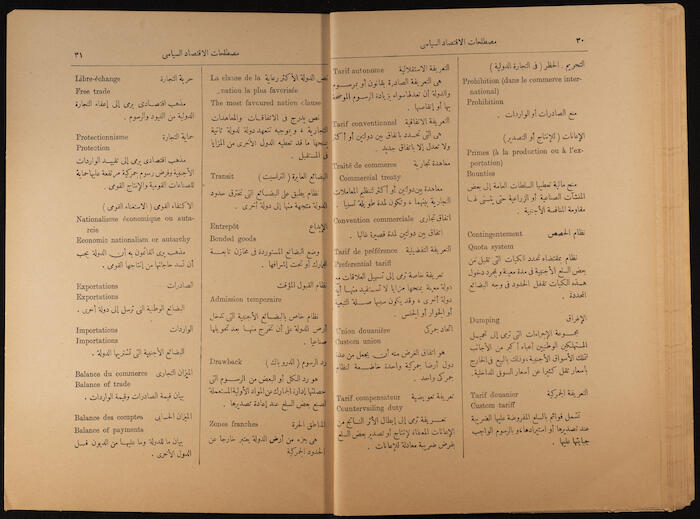 ٣٠
مصطلحات الاقتصاد السياسى
التحريم . الحظر ( فى التجارة الدولية )
Prohibition (dans le commerce inter-
national)
Prohibition
منع الصادرات أو الواردات .
الإعانات ( للإنتاج أو التصدير )
Primes (à la production ou à l'ex-
portation)
Bounties
منح مالية تعطيها السلطات العامة إلى بعض
المنشآت الصناعية أو الزراعية حتى يتسنى لها
مقاومة المنافسة الأجنبية .
نظام الحصص Contingentement
Quota system
نظام بمقتضاه تحدد الكميات التى تقبل من
بعض السلع الأجنبية فى مدة معينة وبمجرد دخول
هذه الكميات تقفل الحدود فى وجه البضائع
المحددة .
الإغراق Dumping
مجموعة الإجراءات التى ترمى إلى تحميل
المستهلكين الوطنيين أعباء أكبر من الأجانب
تلك الأسواق الأجنبية ، وذلك بالبيع فى الخارج
بأسعار تقل كثيرا عن أسعار السوق الداخلية .
التعريفة الجمركية Tarif douanier
Custom tariff
تشمل قوائم بالسلع المفروضة عليها الضريبة
عند تصديرها أو استيرادها ، والرسوم الواجب
جبايتها عليها .
التعريفة الاستقلالية Tarif autonome
هى التعريفة الصادرة بقانون أو بمرسوم
والدولة أن تعدلها سواء بزيادة الرسوم الموضحة
بها أو إنقاصها .
التعريفة الاتفاقية Tarif conventionnel
هى التى تحدد باتفاق بين دولتين أو أكثر
ولا تعدل إلا باتفاق جديد .
معاهدة تجارية Traité de commerce
Commercial treaty
معاهدة بين دولتين أو أكثر لتنظيم المعاملات
التجارية بينهما ، وتكون لمدة طويلة نسبيا .
اتفاق تجارى Convention commerciale
اتفاق بين دولتين لمدة قصيرة غالبا .
التعريفة التفضيلية Tarif de préférence
Preferential tariff
تعريفة خاصة ترمى إلى تسهيل العلاقات مع
دولة معينة بمنحها مزايا لا تستفيد منها أية
دولة أخرى ، وقد يكون سببها صلة التبعية
أو الجوار أو الجنس .
اتحاد جمركى Union douanière
Custom union
هو اتفاق الغرض منه أن يجعل من عدة
دول أرضا جمركية واحدة خاضعة لنظام
جمركى واحد .
تعريفة تعويضية Tarif compensateur
Countervailing duty
تعريفة ترمى إلى إبطال الأثر الناتج من
الإعانات المعطاة لإنتاج أو تصدير بعض السلع
بفرض ضريبة معادلة للإعانات .
مصطلحات الاقتصاد السياسى
٣١
نص الدولة الأكثر رعاية La clause de la
nation la plus favorisée
The most favoured nation clause
نص يدرج فى الاتفاقات والمعاهدات
التجارية ، وبموجبه تتعهد دولة لدولة ثانية
بمنحها ما قد تعطيه الدول الأخرى من المزايا
فى المستقبل .
البضائع العابرة ( الترانسيت ) Transit
نظام يطلق على البضائع التى تخترق حدود
الدولة متجهة منها إلى دولة أخرى .
الإيداع Entrepôt
Bonded goods
وضع البضائع المستوردة فى مخازن تابعة
للجمارك أو تحت إشرافها .
نظام القبول المؤقت
Admission temporaire
نظام خاص بالبضائع الأجنبية التى تدخل
أرض الدولة على أن تخرج منها بعد تحويلها
صناعيا .
رد الرسوم ( الدروباك ) Drawback
هو رد الكل أو البعض من الرسوم التى
حصلتها إدارة الجمارك عن المواد الأولية المستعملة
لصنع بعض السلع عند إعادة تصديرها .
المناطق الحرة Zones franches
هى جزء من أرض الدولة يعتبر خارجا عن
الحدود الجمركية
حرية التجارة Libre-échange
Free trade
مذهب اقتصادى يرمى إلى إعفاء التجارة
الدولية من القيود والرسوم .
حماية التجارة Protectionnisme
Protection
مذهب اقتصادى يرمى إلى تقييد الواردات
الأجنبية وفرض رسوم جمركية مرتفعة عليها حماية
للصناعات القومية والإنتاج القومى .
الاكتفاء القومى ( الاستغناء القومى )
Nationalisme économique ou auta-
rcie
Economic nationalism or autarchy
مذهب يرى القائمون به أن الدولة يجب
أن تسد حاجاتها من إنتاجها القومى .
الصادرات Exportations
Exportations
البضائع الوطنية التى ترسل إلى دولة أخرى .
الواردات Importations
Importations
البضائع الأجنبية التى تشتريها الدولة .
الميزان التجارى Balance du commerce
Balance of trade
بيان قيمة الصادرات وقيمة الواردات .
الميزان الحسابى Balance des comptes
Balance of payments
بيان ما للدولة وما عليها من الديون قبل
الدول الأخرى .